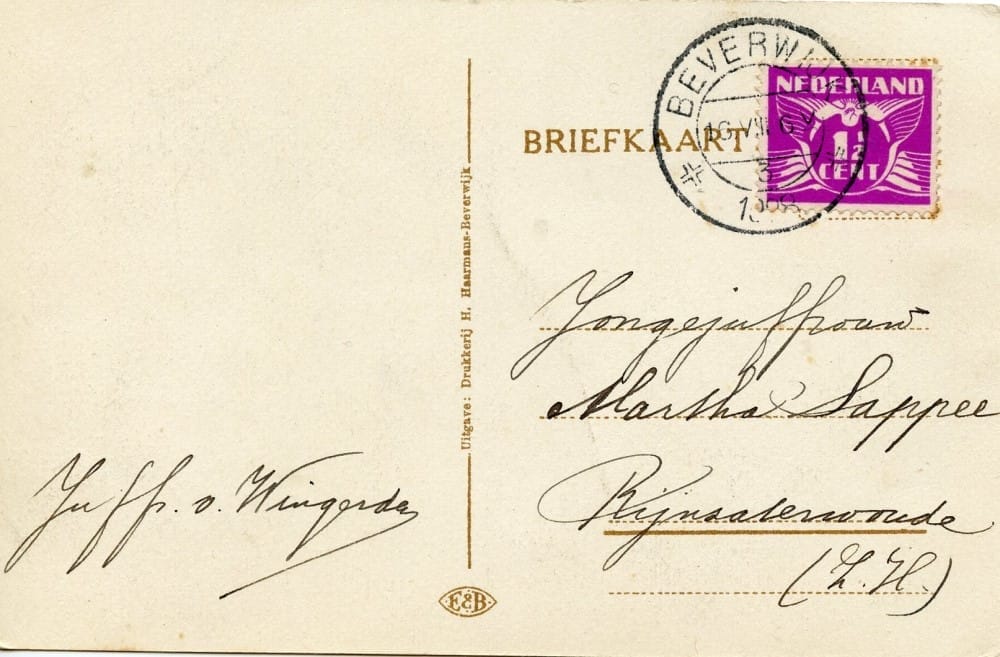 BEVERWIJK
16.VIII.6 V
5
1928
NEDERLAND
1½
CENT
BRIEFKAART
Uitgave: Drukkerij H. Haarmans-Beverwijk
Jongejuffrouw
Martha Sappee
Rijnsaterwoude
(Z.H.)
Juffr. v. Wingerden
E&B